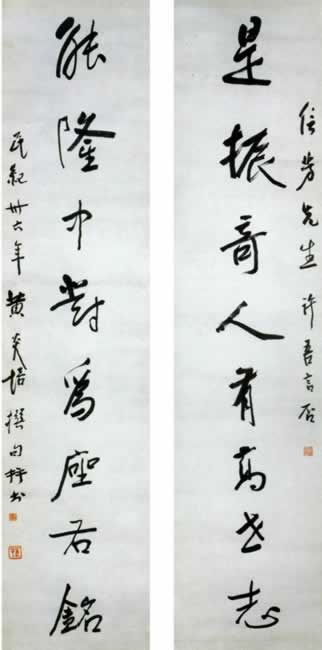 信芳先生 許吾言否
是振奇人有高世志
能隆中對爲座右銘
民紀卅六年黃炎培撰句并書